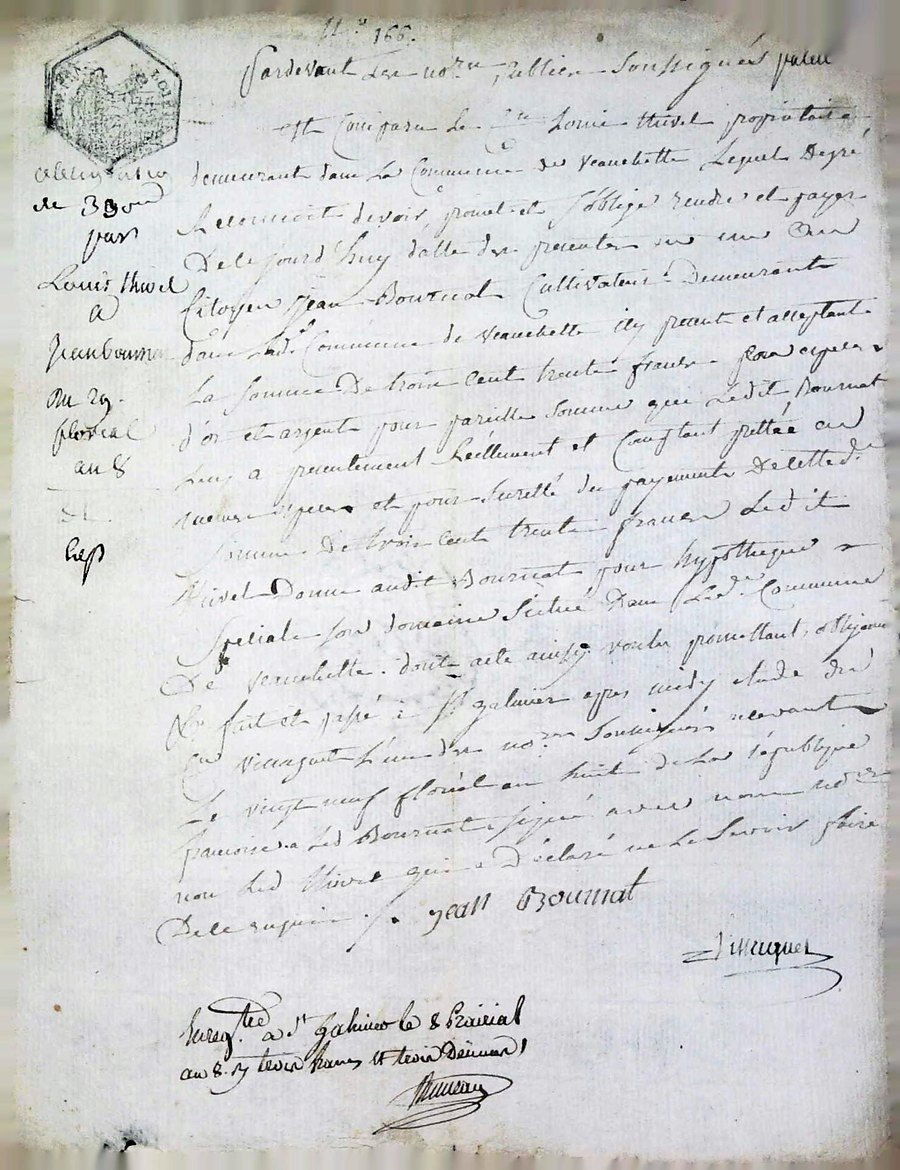 N.º 166.
Pardevant Les no.res Publics Soussignés
est Comparu Le Louis thivel propriétaire
demeurant dans La Commune de veauchette Lequel De gré
Reconnoit devoir promet et S'oblige rendre et payer
De ce jourd'huy datte des presentes en un an au
Citoyen Jean Bournat Cultivateur Demeurant
dans Lad.e Commune de veauchette icy present et acceptant
La Somme De trois cent trente francs Pour especes
d'or et argent pour pareille Somme que Ledit Bournat
Luy a presentement Reellement et Comptant prettée en
memes especes et pour Suretté du payement De cette d.e
Somme De trois cent trente francs Ledit
thivel Donne audit Bournat pour hypotheque
Speciale Son domaine Scitué Dans Lad.e Commune
De veauchette. dont acte ainsy voulu promettant, obligeant
&c fait et passé à S.t galmier apres midy etude de
L'un des no.res Soussignés
Le vingt neuf floréal an huit de La république
francoise Led Bournat a signé avec nous no.res
non Led thivel qui a Déclaré ne Le Savoir faire
De ce enquis ./. Jean Bournat
Enreg.tré a S.t Galmier le 8 Prairial
an 8. trois francs et trois Décimes
obligation
de 330
par
Louis thivel
a
Jean bournat
du 29.
floréal
an 8